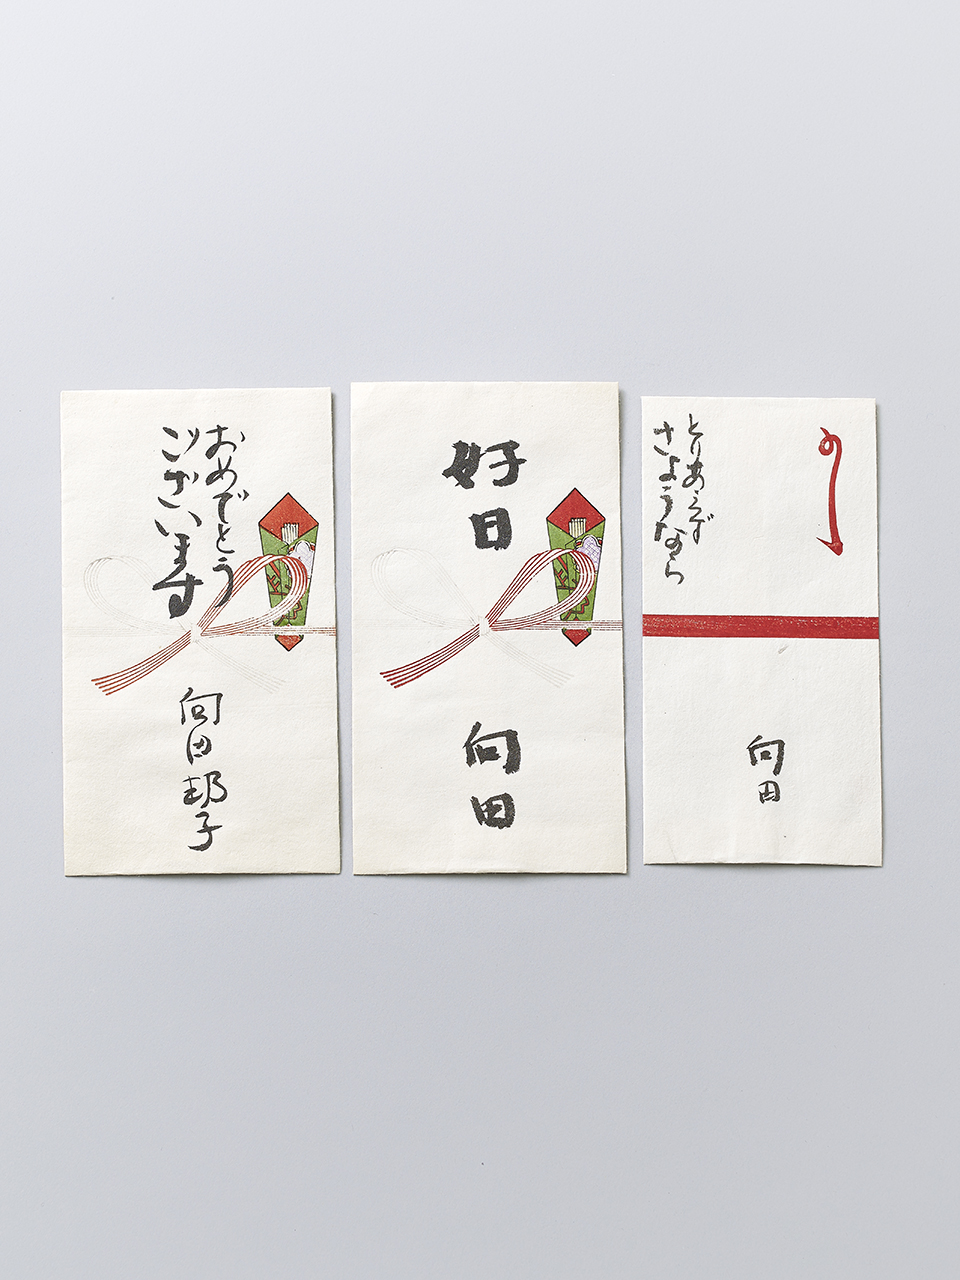 おめでとう
ございます
向田邦子
好日
向田
とりあえず
さようなら
向田